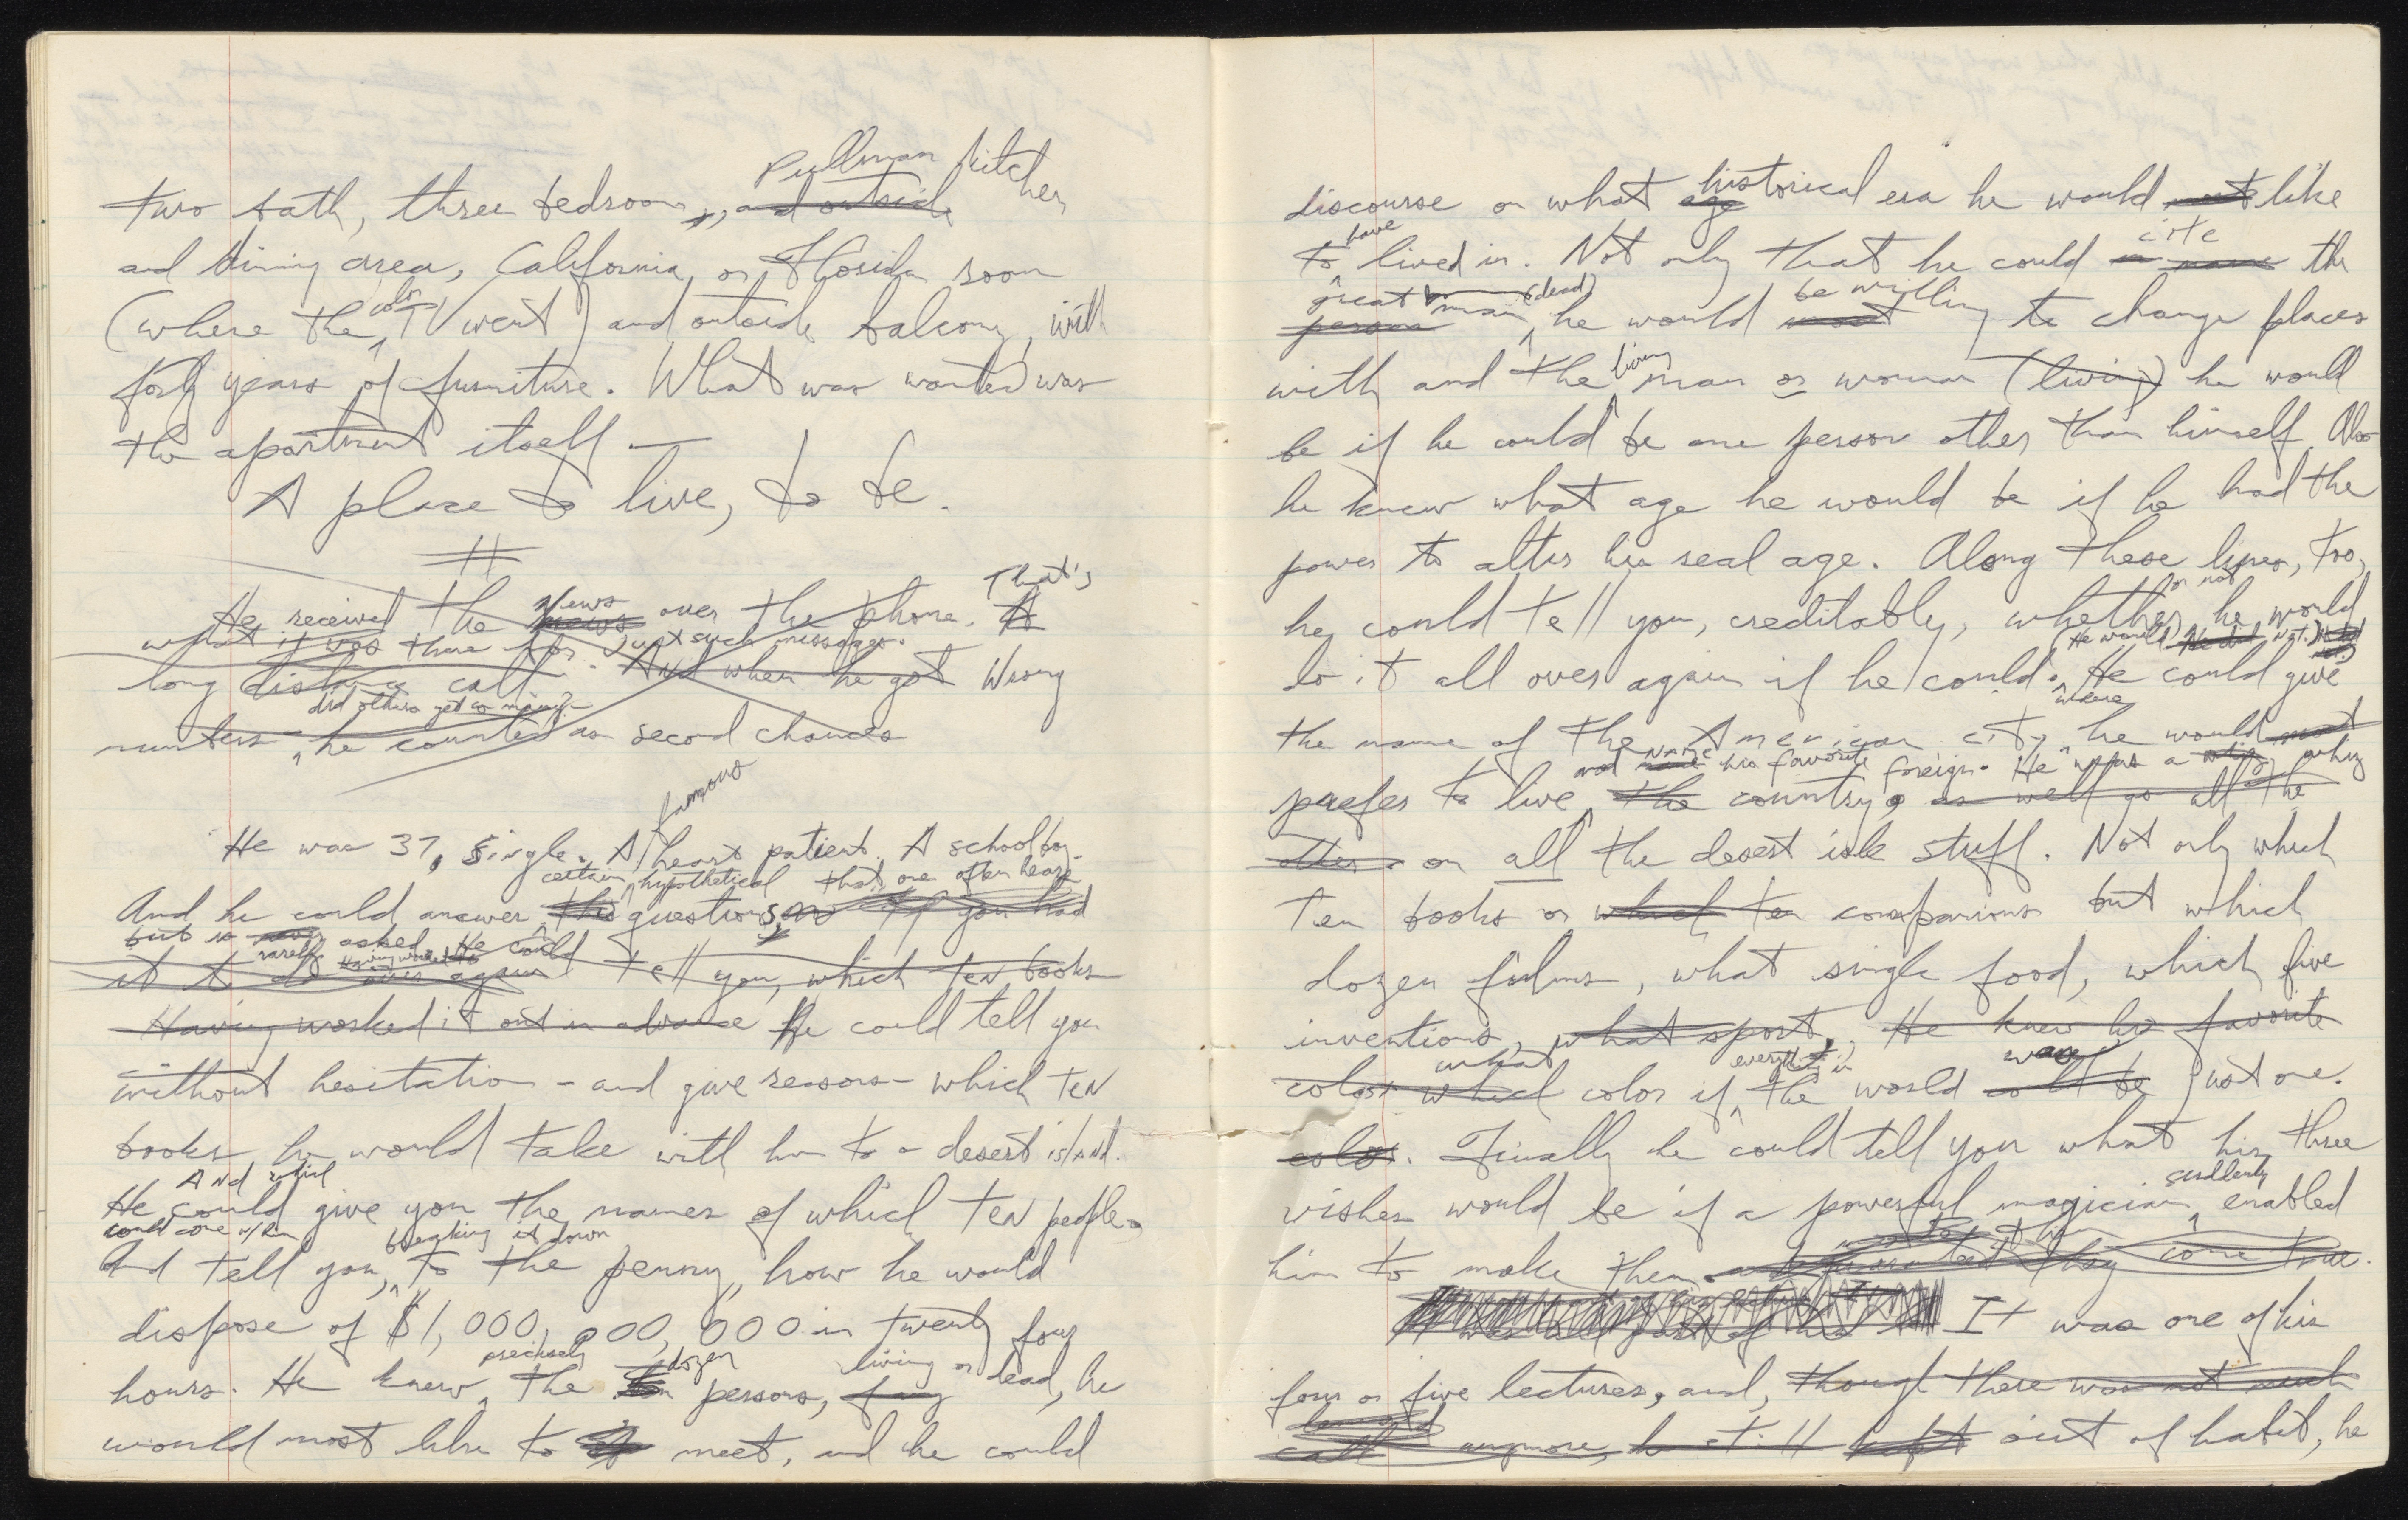 Pullman kitchen
two bath, three bedroom, and outside
and dining area, California or Florida room
color
(where the TV went) and outside balcony, with
forty years of furniture. What was wanted was
the apartment itself —
A place to live, to be.
#
News That's
He received the news over the phone. A
what it was there for. Just such messages.
long distance call. And when he got Wrong
did others get so many?
numbers he counted as second chances
famous
He was 37, single. A heart patient. A schoolboy.
certain hypothetical that one often hears
And he could answer this questions, If you had
but is asked. He could
rarely Having worked
it to do over again tell you, which TEN books
Having worked it out in advance He could tell you
without hesitation - and give reasons - which TEN
books he would take with him to a desert island.
And which
He could give you the names of which TEN people.
could come w/ him breaking it down
And tell you, to the penny, how he would
dispose of $1,000,000,000 in twenty four
precisely dozen living or
hours. He knew, the ten persons, dead, he
would most like to meet, and he could
historical
discourse on what age era he would like
have cite
to lived in. Not only that he could name the
great man (dead) be willing
person he would want to change places
living
with and the man or woman (living) he would
be if he could be one person other than himself. Also
he knew what age he would be if he had the
power to alter his real age. Along these lines, too,
or not
he could tell you, creditably, whether he would
(He would not.)
do it all over again if he could. He could give
where
the name of the American city he would most
and name his favorite foreign. He was a whiz
prefer to live, the country, as well go all the
other on all the desert isle stuff. Not only which
Ten books or which ten companions but which
dozen films, what single food, which five
inventions, what sport, He knew his favorite
what everything in were
color which color if the world could be just one.
color. Finally he could tell you what his three
suddenly
wishes would be if a powerful magician enabled
him to make them. they come true.
It was one of his
four or five lectures, and, though there was not much
call anymore, he still kept out of habit, he